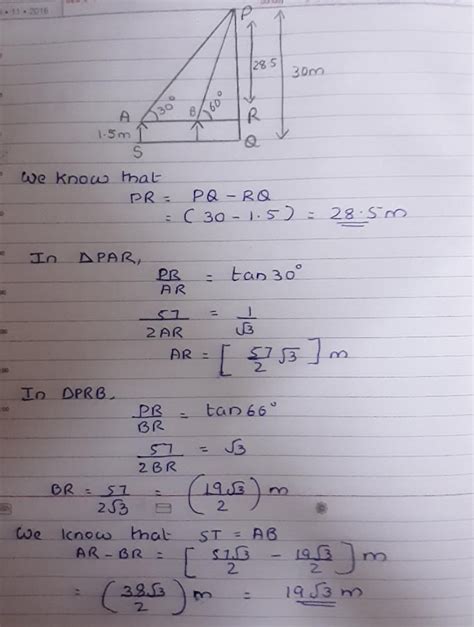 13 • 2016
P
28.5
30m
A 30° B 60° R
1.5m
S Q
We know that
PR = PQ - RQ
= (30 - 1.5) = 28.5m
In ΔPAR,
PR/AR = tan30°
57/2AR = 1/√3
AR = [57√3/2] m
In ΔPRB,
PR/BR = tan60°
57/2BR = √3
BR = 57/2√3 = (19√3/2) m
We know that ST = AB
AR - BR = [57√3/2 - 19√3/2] m
= (38√3/2) m = 19√3 m